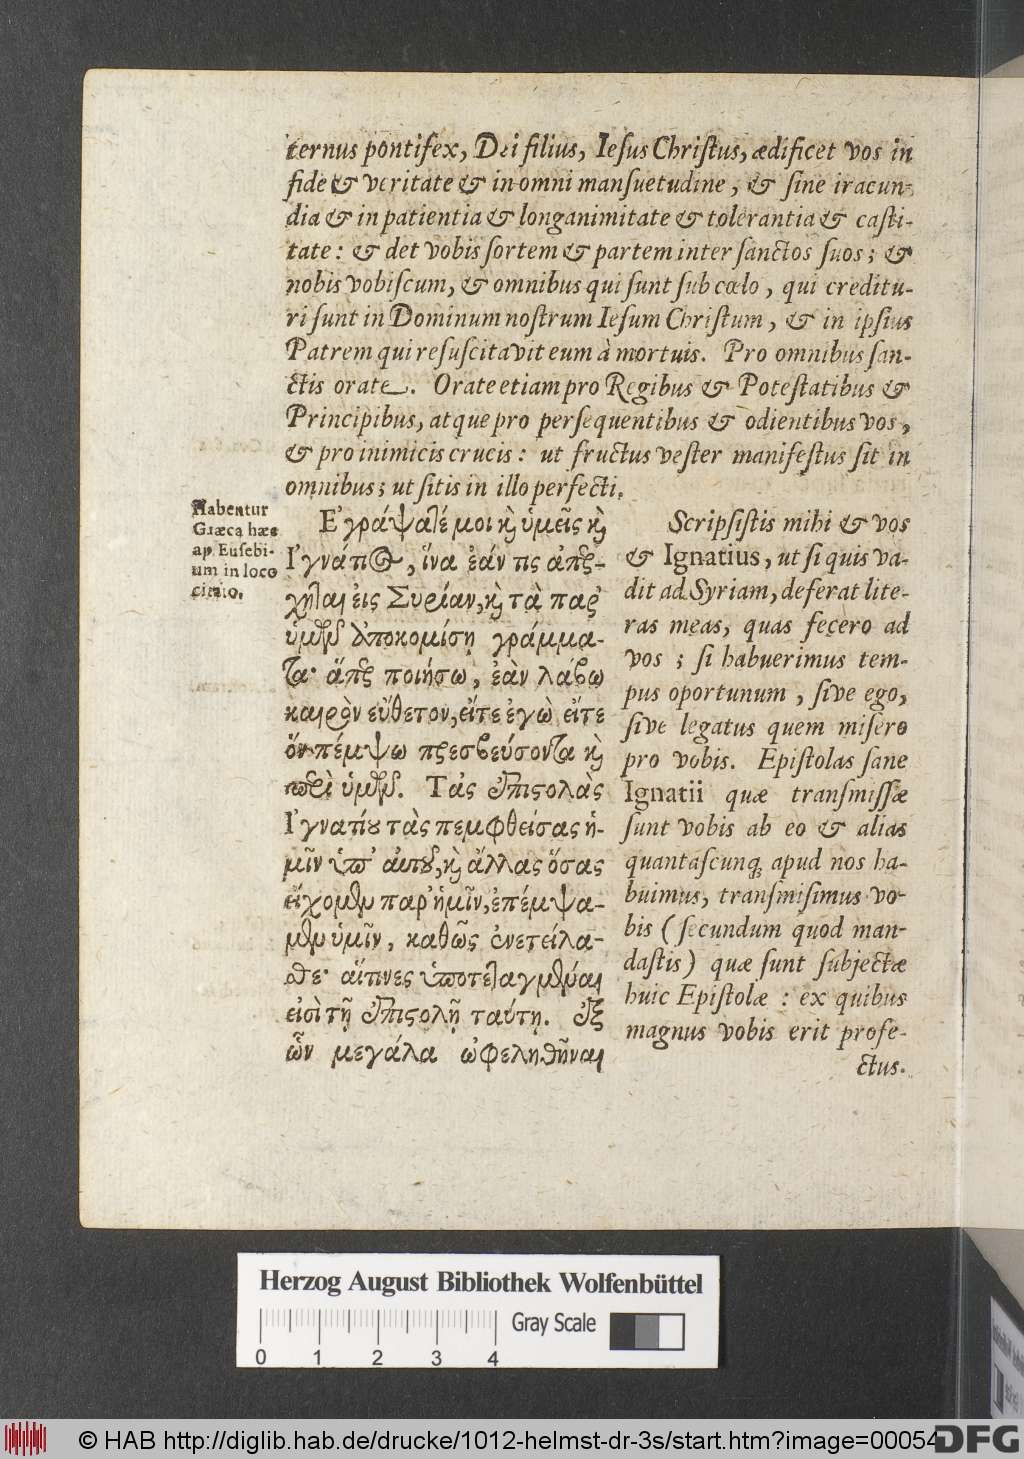 ternus pontifex, Dei filius, Iesus Christus, ædificet vos in
fide & veritate & in omni mansuetudine, & sine iracun-
dia & in patientia & longanimitate & tolerantia & casti-
tate: & det vobis sortem & partem inter sanctos suos; &
nobis vobiscum, & omnibus qui sunt sub cœlo, qui creditu-
ri sunt in Dominum nostrum Iesum Christum, & in ipsius
Patrem qui resuscitavit eum à mortuis. Pro omnibus san-
ctis orate. Orate etiam pro Regibus & Potestatibus &
Principibus, atque pro persequentibus & odientibus vos,
& pro inimicis crucis: ut fructus vester manifestus sit in
omnibus; ut sitis in illo perfecti.
Habentur
Græca hæc
ap. Eusebi-
um in loco
citato.
Ἐγράψατέ μοι καὶ ὑμεῖς καὶ
Ἰγνάτιος, ἵνα ἐάν τις ἀπέρ-
χηται εἰς Συρίαν, καὶ τὰ παρ'
ὑμῶν ἀποκομίσῃ γράμμα-
τα· ἅπερ ποιήσω, ἐὰν λάβω
καιρὸν εὔθετον, εἴτε ἐγὼ εἴτε
ὃν πέμψω πρεσβεύσοντα καὶ
περὶ ὑμῶν. Τὰς ἐπιστολὰς
Ἰγνατίου τὰς πεμφθείσας ἡ-
μῖν ὑπ' αὐτοῦ, καὶ ἄλλας ὅσας
εἴχομεν παρ' ἡμῖν, ἐπέμψα-
μεν ὑμῖν, καθὼς ἐνετείλα-
σθε· αἵτινες ὑποτεταγμέναι
εἰσὶ τῇ ἐπιστολῇ ταύτῃ. Ἐξ
ὧν μεγάλα ὠφεληθῆναι
Scripsistis mihi & vos
& Ignatius, ut si quis va-
dit ad Syriam, deferat lite-
ras meas, quas fecero ad
vos; si habuerimus tem-
pus oportunum, sive ego,
sive legatus quem misero
pro vobis. Epistolas sane
Ignatii quæ transmissæ
sunt vobis ab eo & alias
quantascunq; apud nos ha-
buimus, transmisimus vo-
bis (secundum quod man-
dastis) quæ sunt subjectæ
huic Epistolæ: ex quibus
magnus vobis erit profe-
ctus.
Herzog August Bibliothek Wolfenbüttel
Gray Scale
0 1 2 3 4
© HAB http://diglib.hab.de/drucke/1012-helmst-dr-3s/start.htm?image=00054
DFG